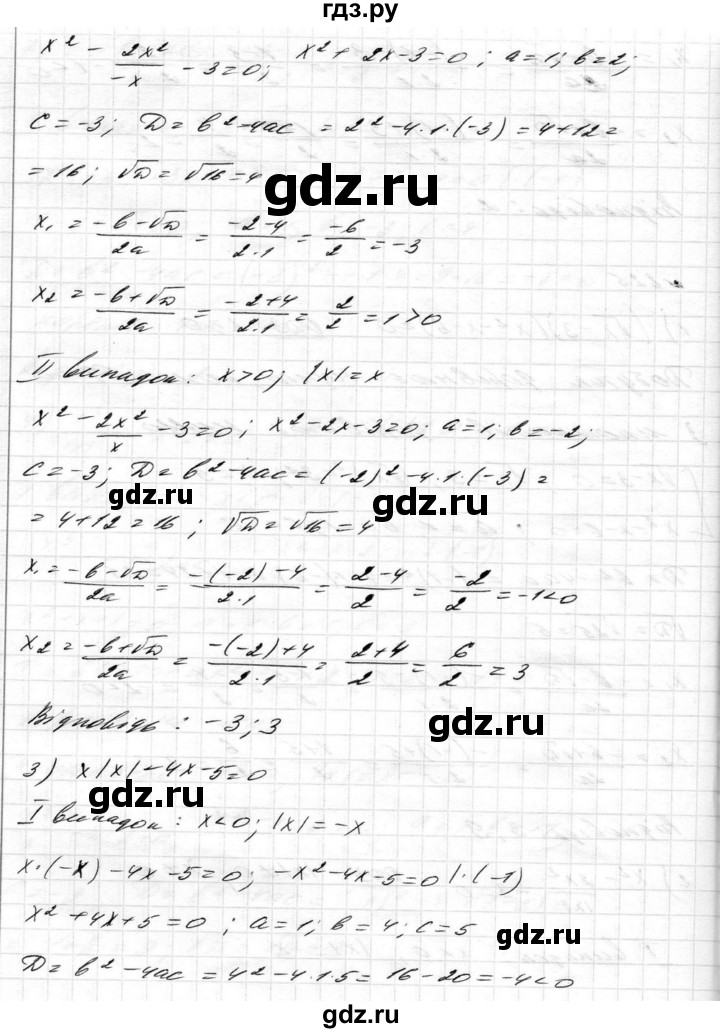 гдз.ру
x² - 2x²/-x - 3=0; x² + 2x-3=0; a=1; b=2;
c=-3; D=b²-4ac = 2²-4·1·(-3) = 4+12=
=16; √D=√16=4
gdz.ru
x₁ = -b-√D/2a = -2-4/2·1 = -6/2 = -3
x₂ = -b+√D/2a = -2+4/2·1 = 2/2 = 1>0
II випадок: x>0; |x|=x
x² - 2x²/x - 3=0; x²-2x-3=0; a=1; b=-2;
c=-3; D=b²-4ac=(-2)²-4·1·(-3)=
gdz.ru gdz.ru
=4+12=16; √D=√16=4
x₁ = -b-√D/2a = -(-2)-4/2·1 = 2-4/2 = -2/2 = -1<0
x₂ = -b+√D/2a = -(-2)+4/2·1 = 2+4/2 = 6/2 = 3
Відповідь: -3; 3
gdz.ru
3) x|x|-4x-5=0
gdz.ru
I випадок: x<0; |x|=-x
x·(-x)-4x-5=0; -x²-4x-5=0 |·(-1)
x²+4x+5=0; a=1; b=4; c=5
gdz.ru
D=b²-4ac = 4²-4·1·5= 16-20=-4<0